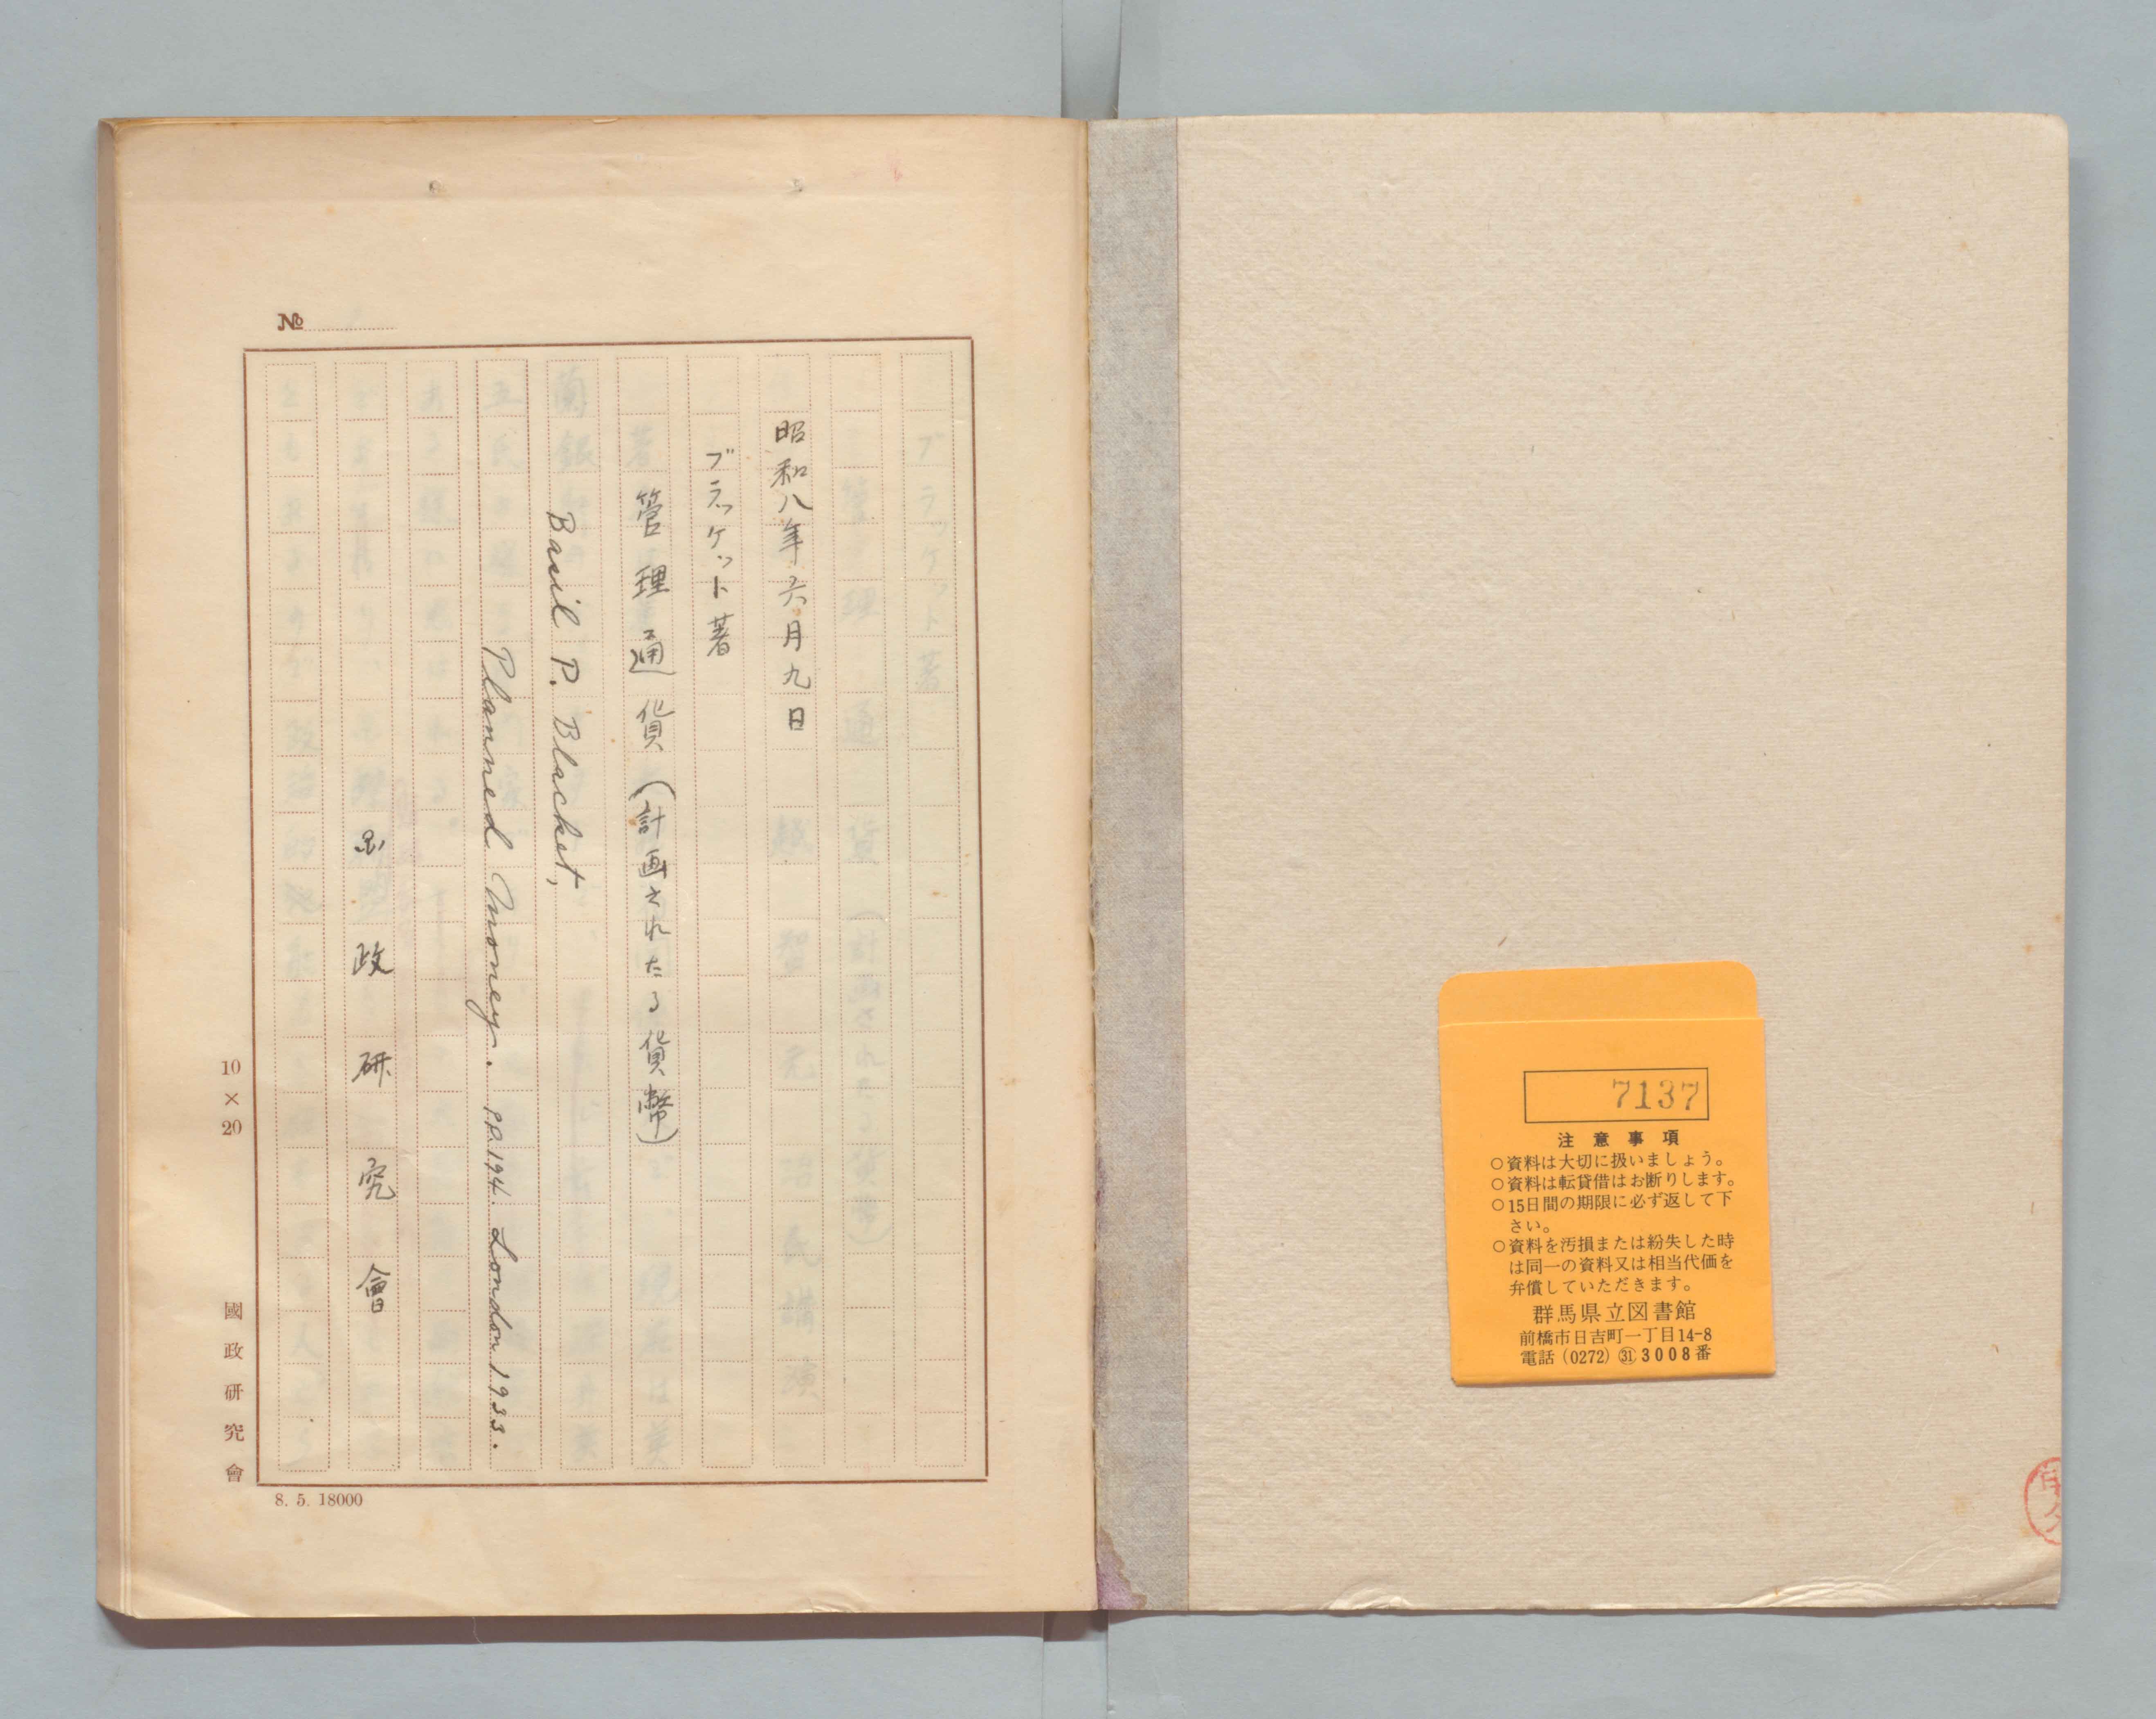 昭和八年六月九日
ブラッケット著
管理通貨(計画されたる貨幣)
Basil P. Blacket,
Planned Money. P.P. 194. London 1933.
政研究會
№
10×20
國政研究會
8. 5. 18000
7137
注意事項
○資料は大切に扱いましょう。
○資料は転貸借はお断りします。
○15日間の期限に必ず返して下
さい。
○資料を汚損または紛失した時
は同一の資料又は相当代価を
弁償していただきます。
群馬県立図書館
前橋市日吉町一丁目14-8
電話(0272)㉛3008番